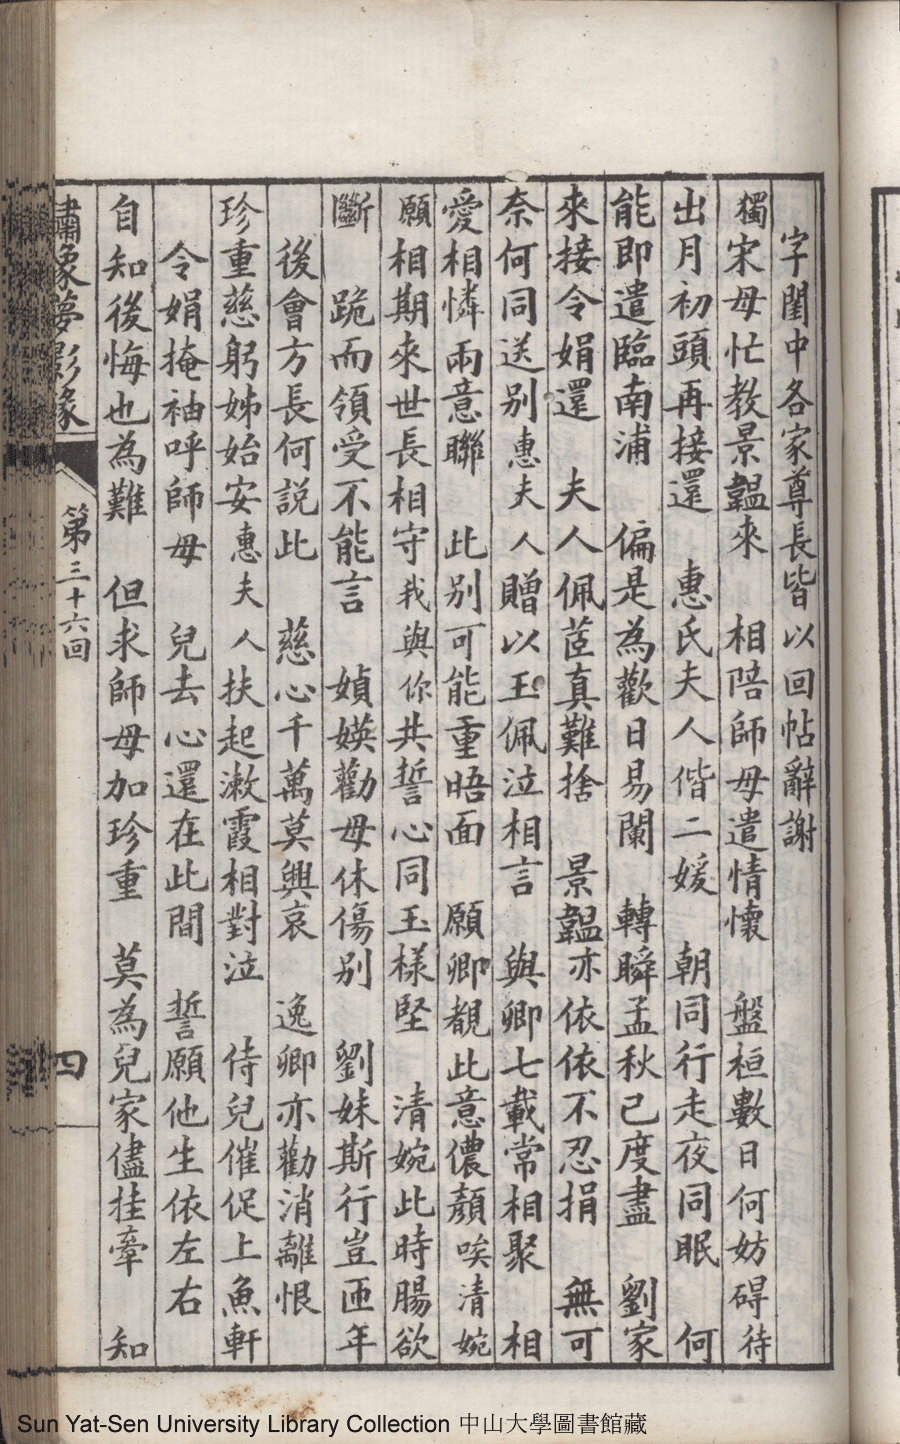 字閨中各家尊長皆以回帖辭謝
獨宋母忙教景韞來　相陪師母遣情懷　盤桓數日何妨碍待
出月初頭再接還　惠氏夫人偕二媛　朝同行走夜同眠　何
能即遣臨南浦　偏是為歡日易闌　轉瞬孟秋已度盡　劉家
來接令娟還　夫人佩茝真難捨　景韞亦依依不忍捐　無可
奈何同送別惠夫人贈以玉佩泣相言　與卿七載常相聚　相
愛相憐兩意聯　此別可能重晤面　願卿覩此意儂顏唉清婉
願相期來世長相守我與你共誓心同玉樣堅　清婉此時腸欲
斷　跪而領受不能言　媜媖勸母休傷別　劉妹斯行豈匝年
後會方長何説此　慈心千萬莫興哀　逸卿亦勸消離恨
珍重慈躬姊始安惠夫人扶起漱霞相對泣　侍兒催促上魚軒
令娟掩袖呼師母　兒去心還在此間　誓願他生依左右
自知後悔也為難　但求師母加珍重　莫為兒家儘挂牽　知
嘯夢影緣
第三十六回
四
Sun Yat-Sen University Library Collection 中山大學圖書館藏